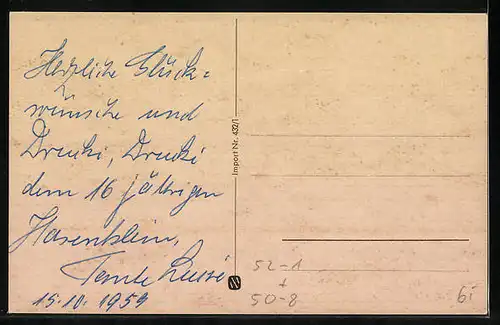 Herzliche Glück=
wünsche und
Drucki, Drucki
dem 16 jährigen
Hasenklein,
Tante Luisi
15.10.1959
Import Nr. 432/1
52-1
+
50-8
6i